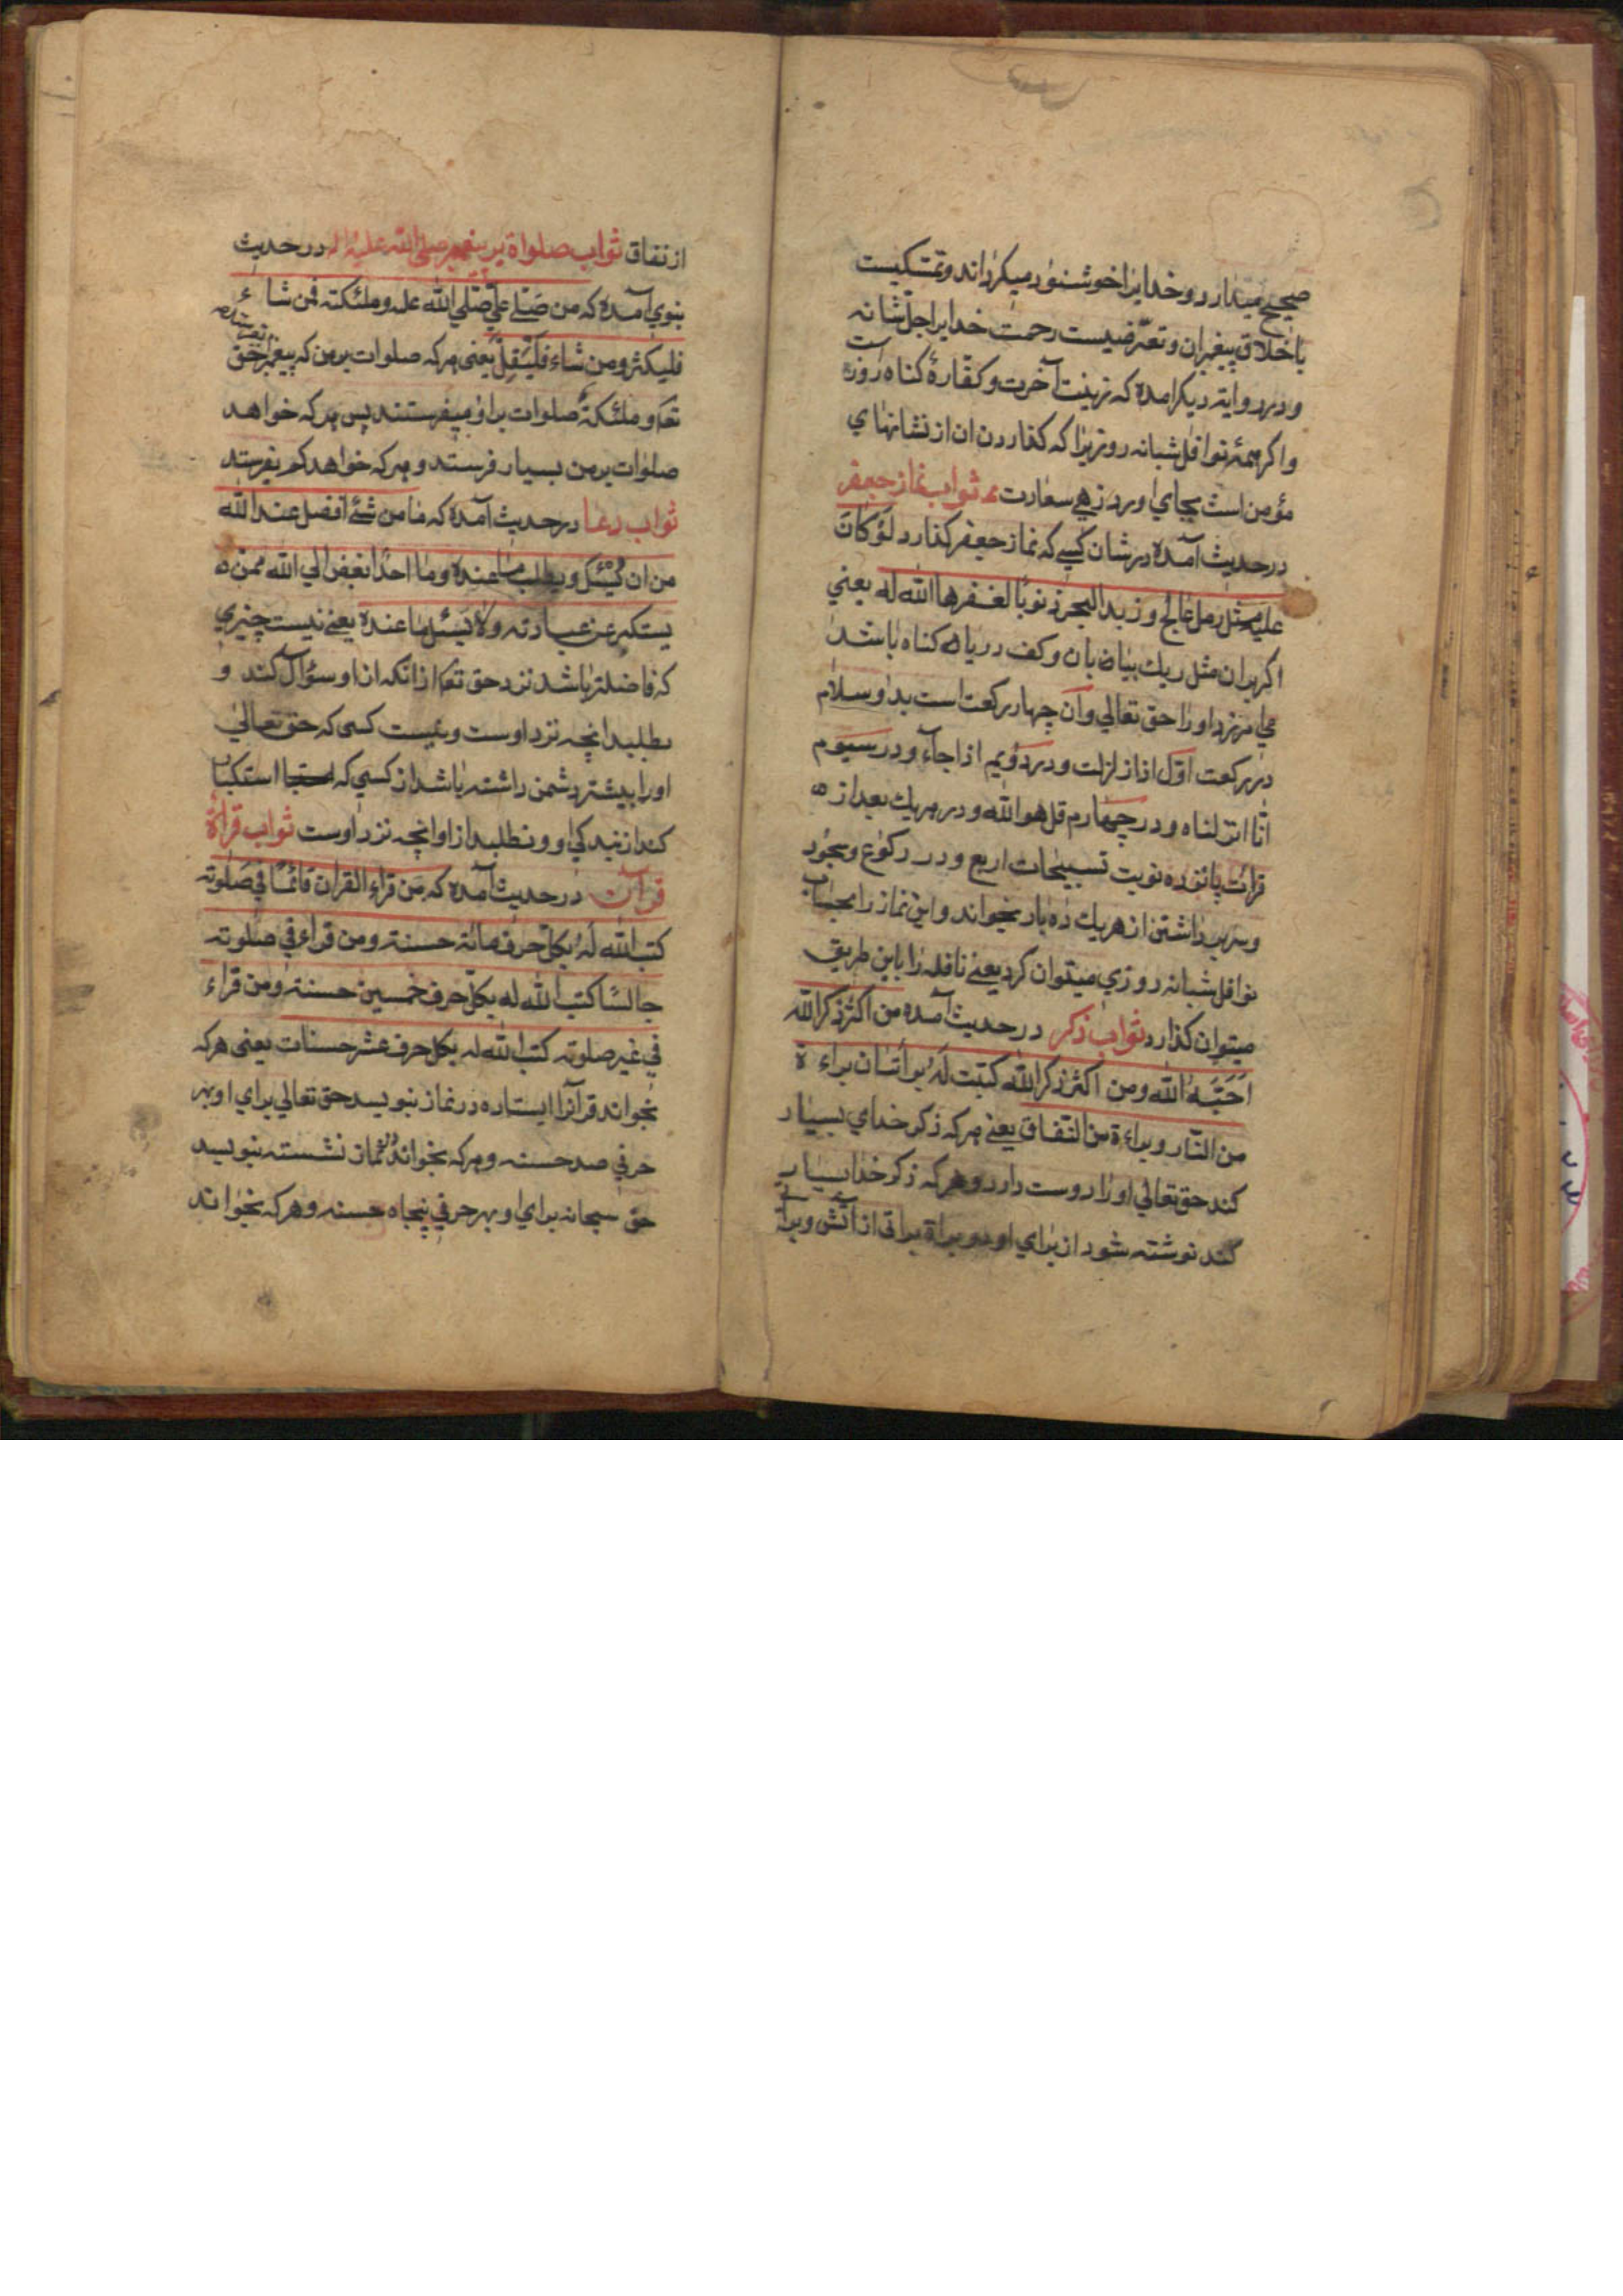 صحیح میدارد و خدایرا خوشنود میکرداند و تمسکیست
باخلاق پیغمبران و تعرضیست رحمت خدایرا جل شانه
و در روایته دیکر امده که زینت آخرت و کفارهٔ کناه روزه است
و اکر همهٔ نوافل شبانه روزیرا که کذاردن ان از نشانهای
مؤمن است بجای اورد زهی سعادت ثواب نماز جعفر
در حدیث آمده در شان کسی که نماز جعفر کذارد لو کان
علیه مثل رمل عالج و زبد البحر ذنوبا لغفرها الله له یعنی
اکر بران مثل ریك بیابان و کف دریاها کناه باشد
می امرزد او را حق تعالی و آن چهار رکعت است بدو سلام
در رکعت اول اذا زلزلت و در دویم اذا جاء و در سیوم
انا انزلناه و در چهارم قل هو الله و در هر یك بعد از
قرائت پانزده نوبت تسبیحات اربع و در رکوع و سجود
و سر برداشتن از هر یك ده بار بخواند و این نماز را بحساب
نوافل شبانه روزی میتوان کرد یعنی نافله را باین طریق
میتوان کذارد ثواب ذکر در حدیث آمده من اکثر ذکر الله
احبه الله و من اکثر ذکر الله کتبت له براتان براءة
من النار و براءة من النفاق یعنی هر که ذکر خدای بسیار
کند حق تعالی او را دوست دارد و هر که ذکر خدا بسیار
کند نوشته شود از برای او دو براة براتی از آتش و برات
از نفاق ثواب صلواة بر پیغمبر صلی الله علیه و اله در حدیث
نبوی آمده که من صلی علی صلی الله علیه و ملئکته فمن شاء
فلیکثر و من شاء فلیقل یعنی هر که صلوات بر من که پیغمبرم حق
تعا و ملئکهٔ صلوات بر او میفرستند پس هر که خواهد
صلوات بر من بسیار فرستد و هر که خواهد کم بفرستد
ثواب دعا در حدیث آمده که ما من شئ افضل عند الله
من ان یسئل و یطلب ما عنده و ما احد ابغض الی الله ممن
یستکبر عن عبادته و لا یسئل ما عنده یعنی نیست چیزی
که فاضلتر باشد نزد حق تعا از انکه از او سؤال کنند و
بطلبد انچه نزد اوست و نیست کسی که حق تعالی
او را بیشتر دشمن داشته باشد از کسی که استکبار
کند از بندکی او و نطلبد از او انچه نزد اوست ثواب قراءة
قرآن در حدیث آمده که من قراء القران قائما فی صلوته
کتب الله له بکل حرف مائة حسنة و من قراء فی صلوته
جالسا کتب الله له بکل حرف خمسین حسنة و من قراء
فی غیر صلوته کتب الله له بکل حرف عشر حسنات یعنی هر که
بخواند قرآنرا ایستاده در نماز بنویسد حق تعالی برای او بهر
حرفی صد حسنه و هر که بخواند در نماز نشسته بنویسد
حق سبحانه برای او بهر حرفی پنجاه حسنه و هر که بخواند